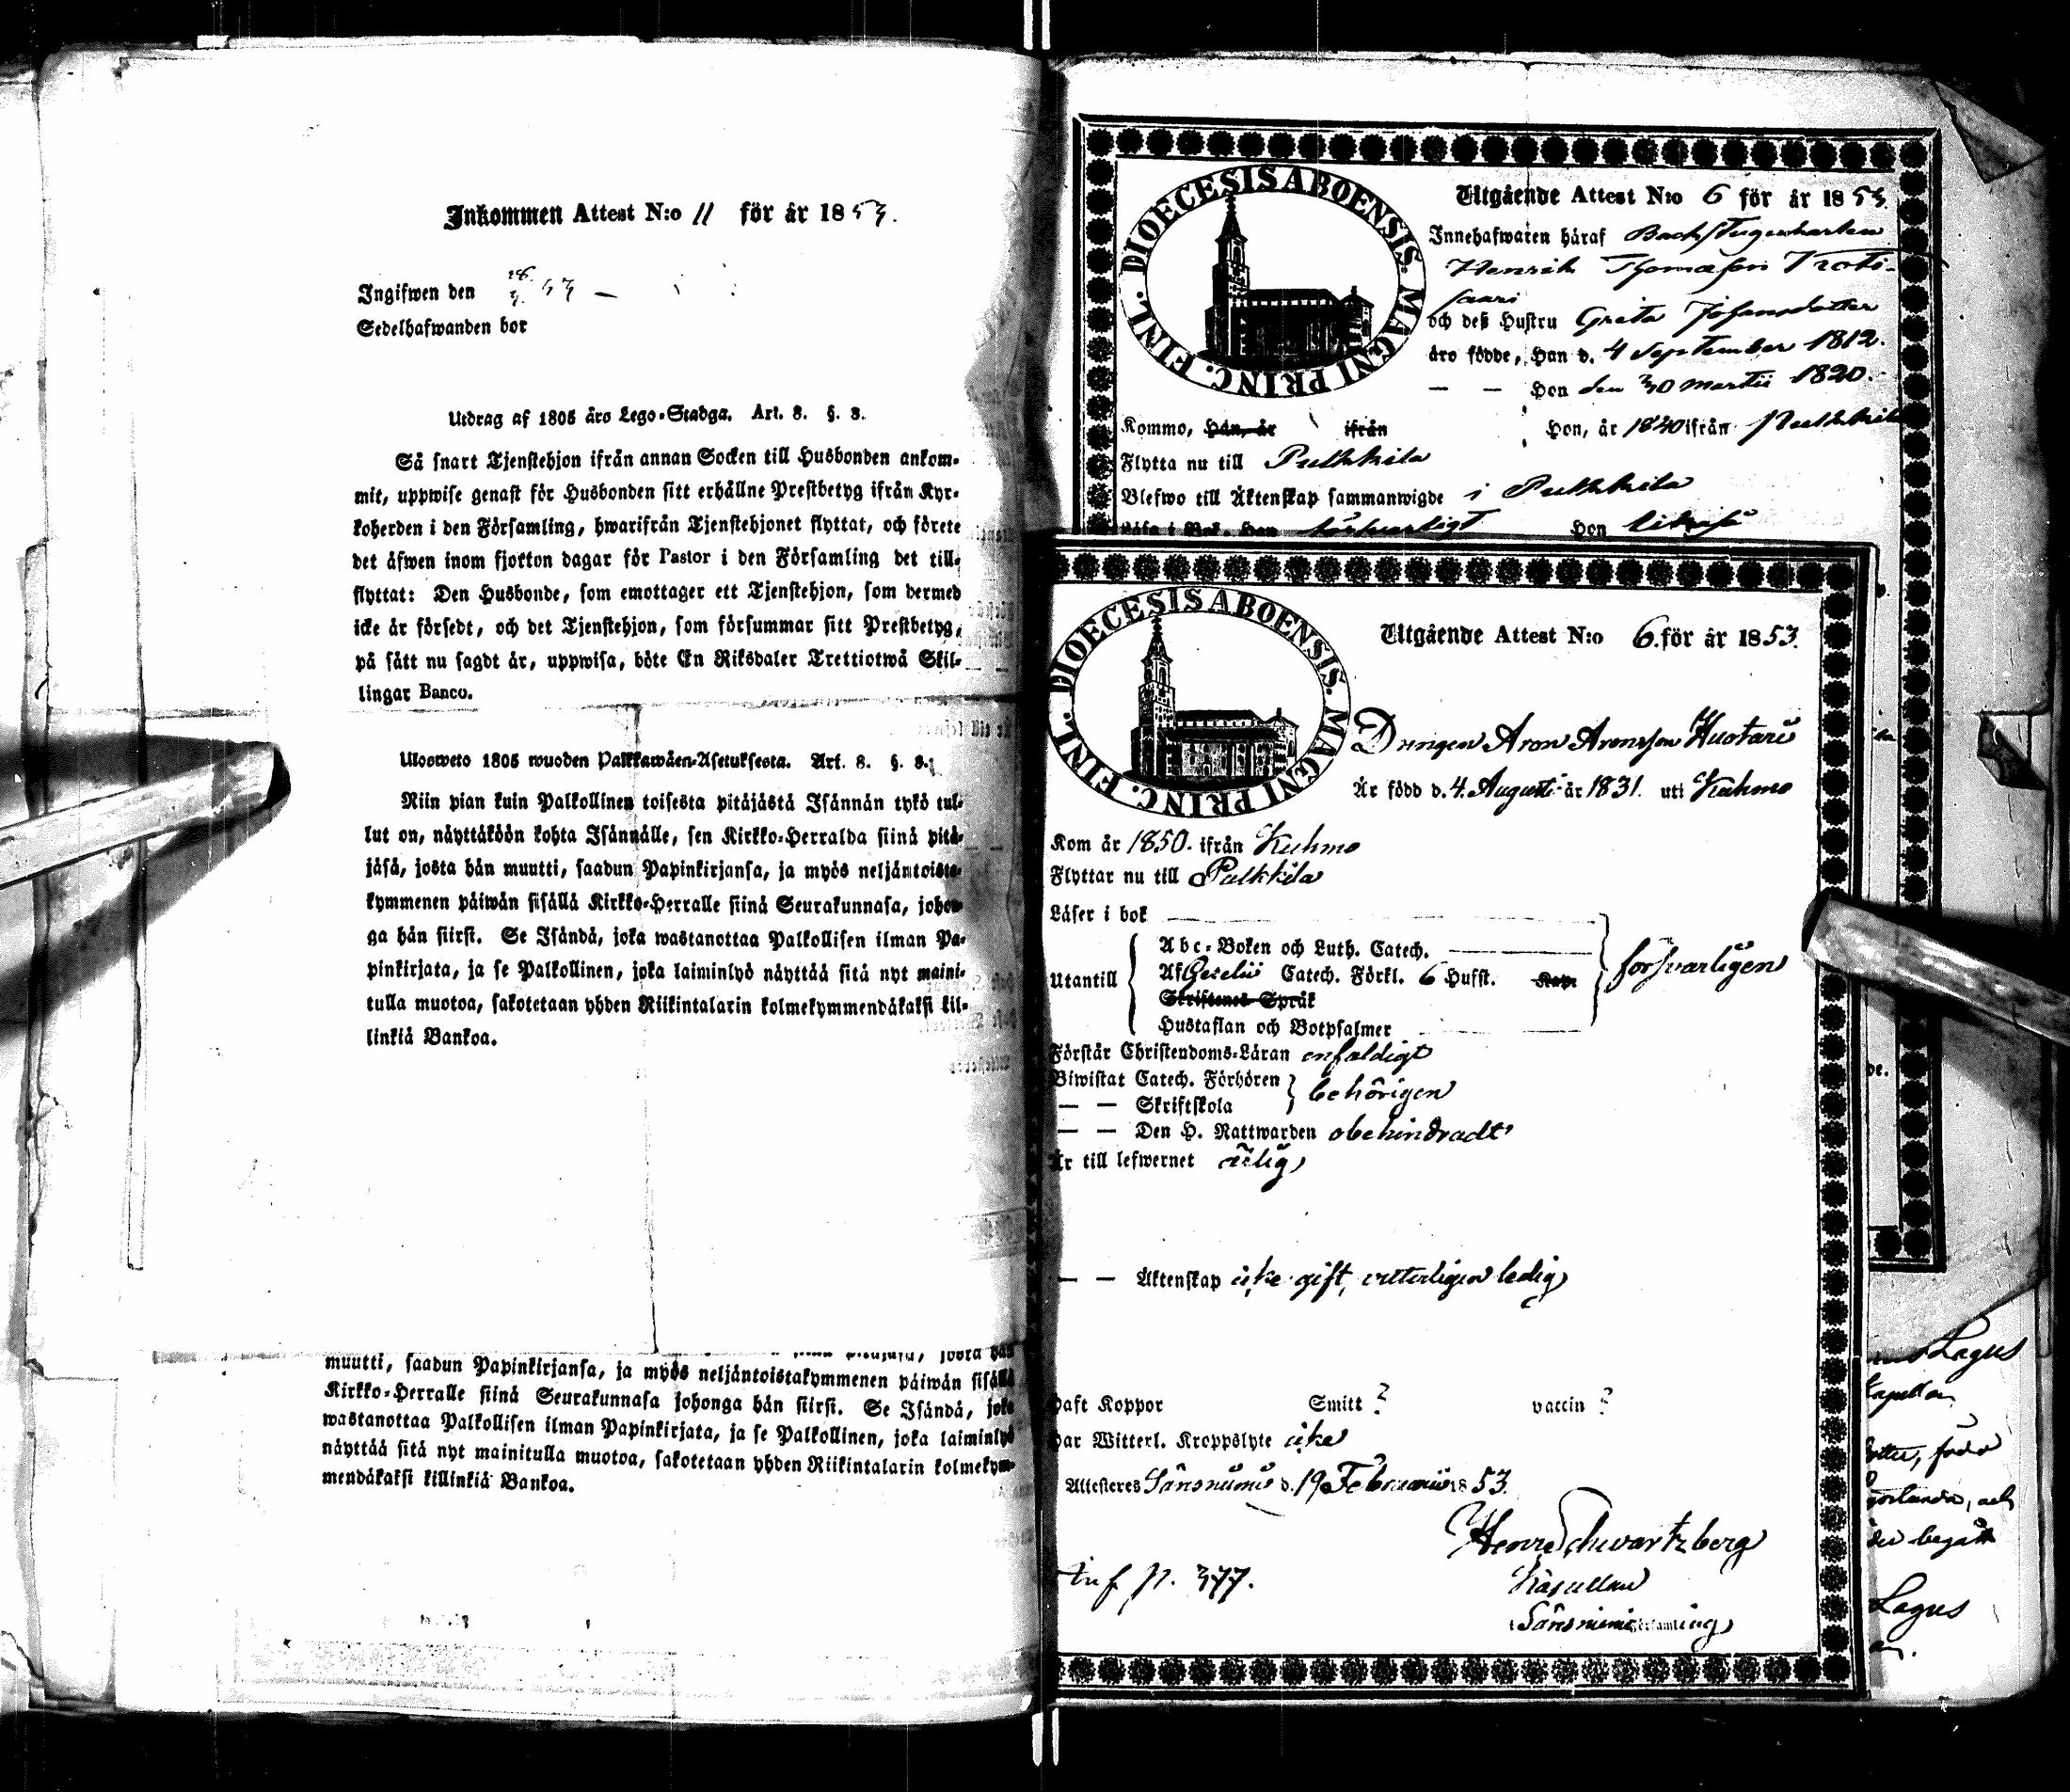 Inkommen Attest N:o 11 för år 1853.
Ingifwen den
Sedelhafwanden bor
Utdrag af 1805 års Lego-Stadga. Art. 8. §. 8.
Så snart Tjenstehjon ifrån annan Socken till Husbonden ankom-
mit, uppwise genast för Husbonden sitt erhållne Prestbetyg ifrån Kyr-
koherden i den Församling, hwarifrån Tjenstehjonet flyttat, och förete
det äfwen inom fjorton dagar för Pastor i den Församling det till-
flyttat: Den Husbonde, som emottager ett Tjenstehjon, som dermed
icke är försedt, och det Tjenstehjon, som försummar sitt Prestbetyg,
på sätt nu sagdt är, uppwisa, böte En Riksdaler Trettiotwå Skil-
lingar Banco.
Ulosweto 1805 wuoden Palkkawäen-Asetuksesta. Art. 8. §. 8.
Niin pian kuin Palkollinen toisesta pitäjästä Isännän tykö tul-
lut on, näyttäköön kohta Isännälle, sen Kirkko-Herralda siinä pitä-
jäsä, josta hän muutti, saadun Papinkirjansa, ja myös neljäntoista-
kymmenen päiwän sisällä Kirkko-Herralle siinä Seurakunnasa, johon-
ga hän siirsi. Se Isändä, joka wastanottaa Palkollisen ilman Pa-
pinkirjata, ja se Palkollinen, joka laiminlyö näyttää sitä nyt maini-
tulla muotoa, sakotetaan yhden Riikintalarin kolmekymmendäkaksi kil-
linkiä Bankoa.
muutti, saadun Papinkirjansa, ja myös neljäntoistakymmenen päiwän sisällä
Kirkko-Herralle siinä Seurakunnasa johonga hän siirsi. Se Isändä, joka
wastanottaa Palkollisen ilman Papinkirjata, ja se Palkollinen, joka laiminlyö
näyttää sitä nyt mainitulla muotoa, sakotetaan yhden Riikintalarin kolmekym-
mendäkaksi killinkiä Bankoa.
DIOECESIS ABOENSIS. MAGNI PRINC. FINL.
Utgående Attest N:o 6 för år 1853.
Innehafwaren häraf Backstugukarlen
Henrik Thomasson Kroti-
saari
och deß Hustru Greta Johansdotter
äro födde, Han d. 4 September 1812.
— — Hon den 30 Martii 1820.
Kommo, Han, år ifrån Hon, år 1840 ifrån Pulkkila
Flytta nu till Pulkkila
Blefwo till Äktenskap sammanwigde i Pulkkila
Läsa i Bok, Han försvarligt Hon likaså
DIOECESIS ABOENSIS. MAGNI PRINC. FINL.
Utgående Attest N:o 6. för år 1853.
Drengen Aron Aronsson Huotari
Är född d. 4. Augusti år 1831. uti Kuhmo
Kom år 1850. ifrån Kuhmo
Flyttar nu till Pulkkila
Läser i bok
Abc-Boken och Luth. Catech.
Utantill Af Gezelii Catech. Förkl. 6 Hufst. Kap. försvarligen
Skriftenes Språk
Hustaflan och Botpsalmer
Förstår Christendoms-Läran enfaldigt
Biwistat Catech. Förhören
— — Skriftskola behörigen
— — Den H. Nattwarden obehindradt
Är till lefwernet ärlig
— — Äktenskap icke gift, vitterligen ledig
Haft Koppor Smitt ? vaccin ?
Har Witterl. Kroppslyte icke
Attesteres Säräsniemi d. 19 Februarii 1853.
Henr Schwartzberg
Kapellan
Säräsniemi församling
Inf. p. 377.
Lagus
Kapellan
de.
född
och
begått
Lagus